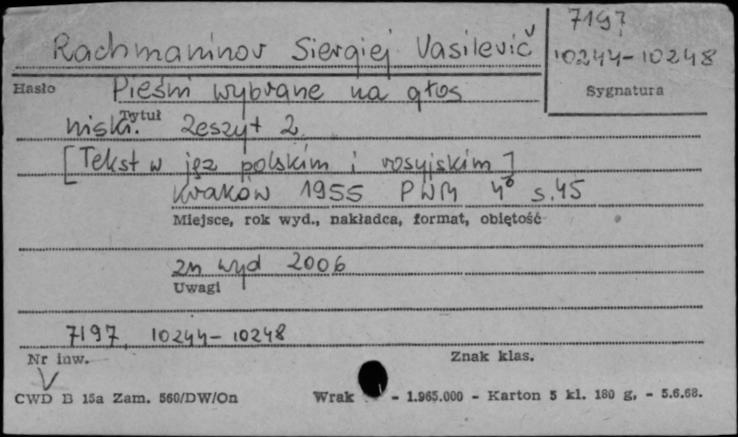 7197
Rachmaninov Siergiej Vasilevič
10244-10248
Hasło
Pieśni wybrane na głos
Sygnatura
Tytuł
niski. Zeszyt 2.
[Tekst w jęz polskim i rosyjskim]
Kraków 1955 PWM 4° s.45
Miejsce, rok wyd., nakładca, format, objętość
zn wyd 2006
Uwagi
7197, 10244-10248
Nr inw.
Znak klas.
CWD B 15a Zam. 560/DW/On Wrak - 1.965.000 - Karton 5 kl. 180 g, - 5.6.68.